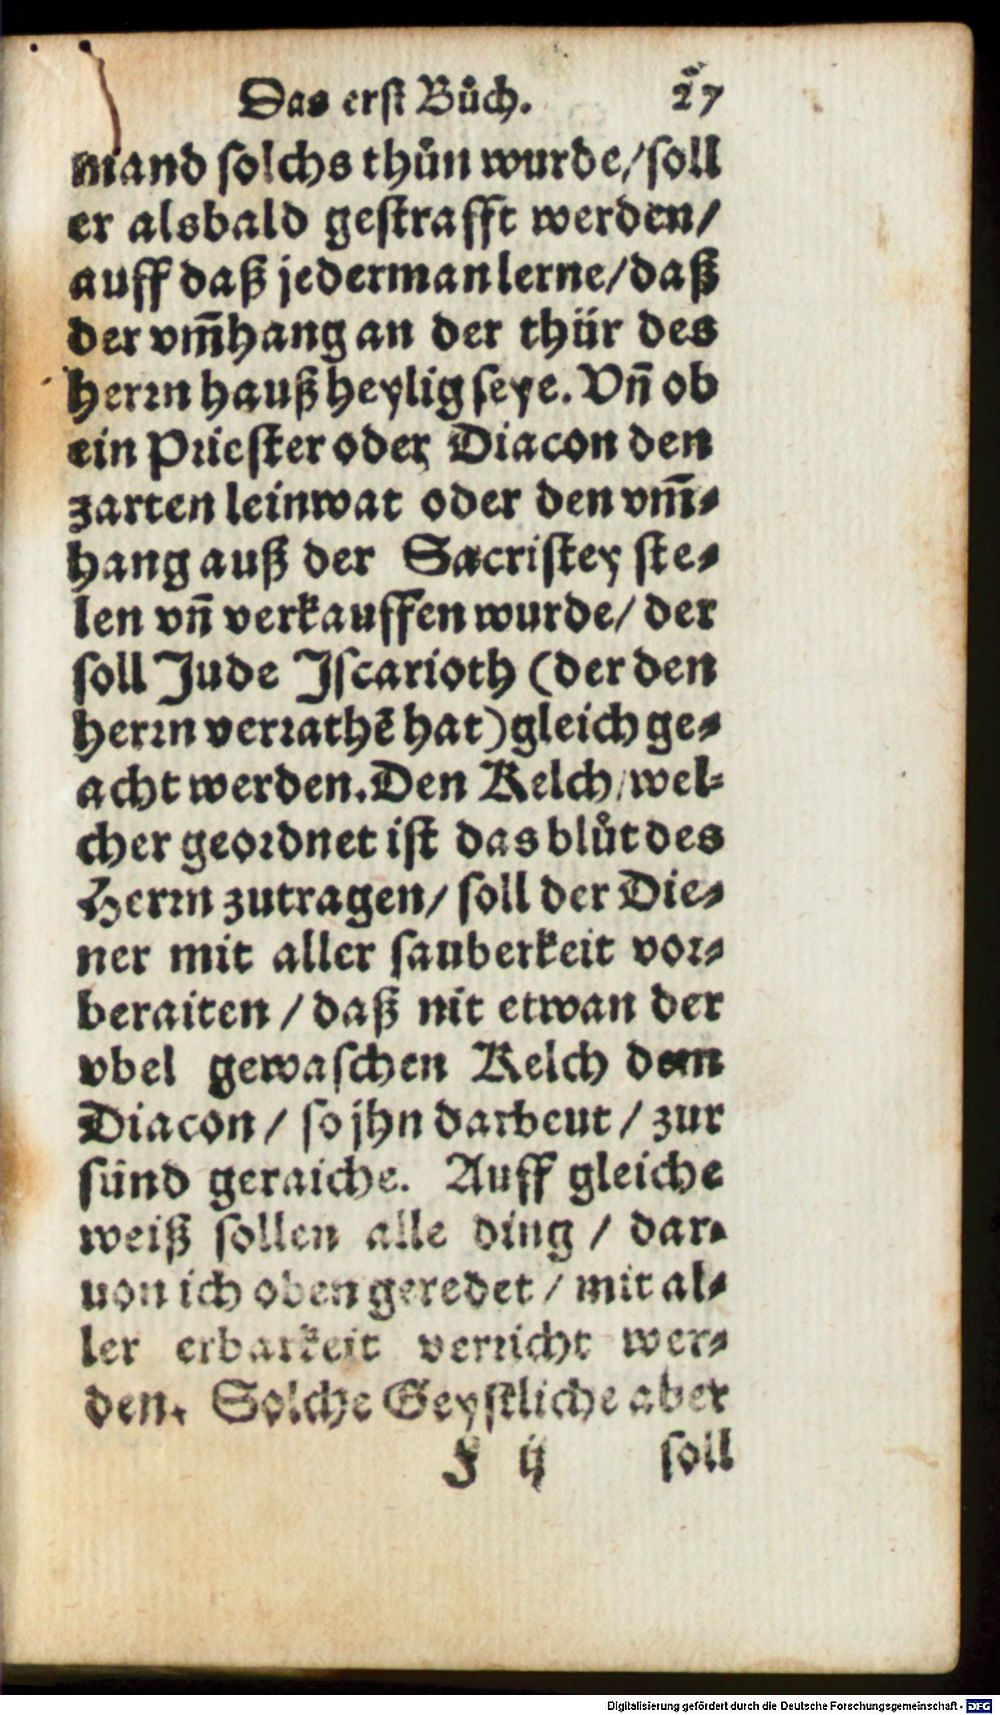 Das erst Bůch. 27
mand solchs thůn wurde/soll
er alsbald gestrafft werden/
auff daß jederman lerne/daß
der vm̄hang an der thür des
Herrn hauß heylig seye. Vn̄ ob
ein Priester oder Diacon den
zarten leinwat oder den vm̄-
hang auß der Sacristey ste-
len vn̄ verkauffen wurde/ der
soll Jude Jscarioth (der den
Herrn verrathē hat) gleich ge-
acht werden. Den Kelch/wel-
cher geordnet ist das blůt des
Herrn zutragen/ soll der Die-
ner mit aller sauberkeit vor-
beraiten / daß nit etwan der
vbel gewaschen Kelch dem
Diacon / so jhn darbeut / zur
sünd geraiche. Auff gleiche
weiß sollen alle ding / dar-
uon ich oben geredet / mit al-
ler erbarkeit verricht wer-
den. Solche Geystliche aber
F ij soll
Digitalisierung gefördert durch die Deutsche Forschungsgemeinschaft - DFG